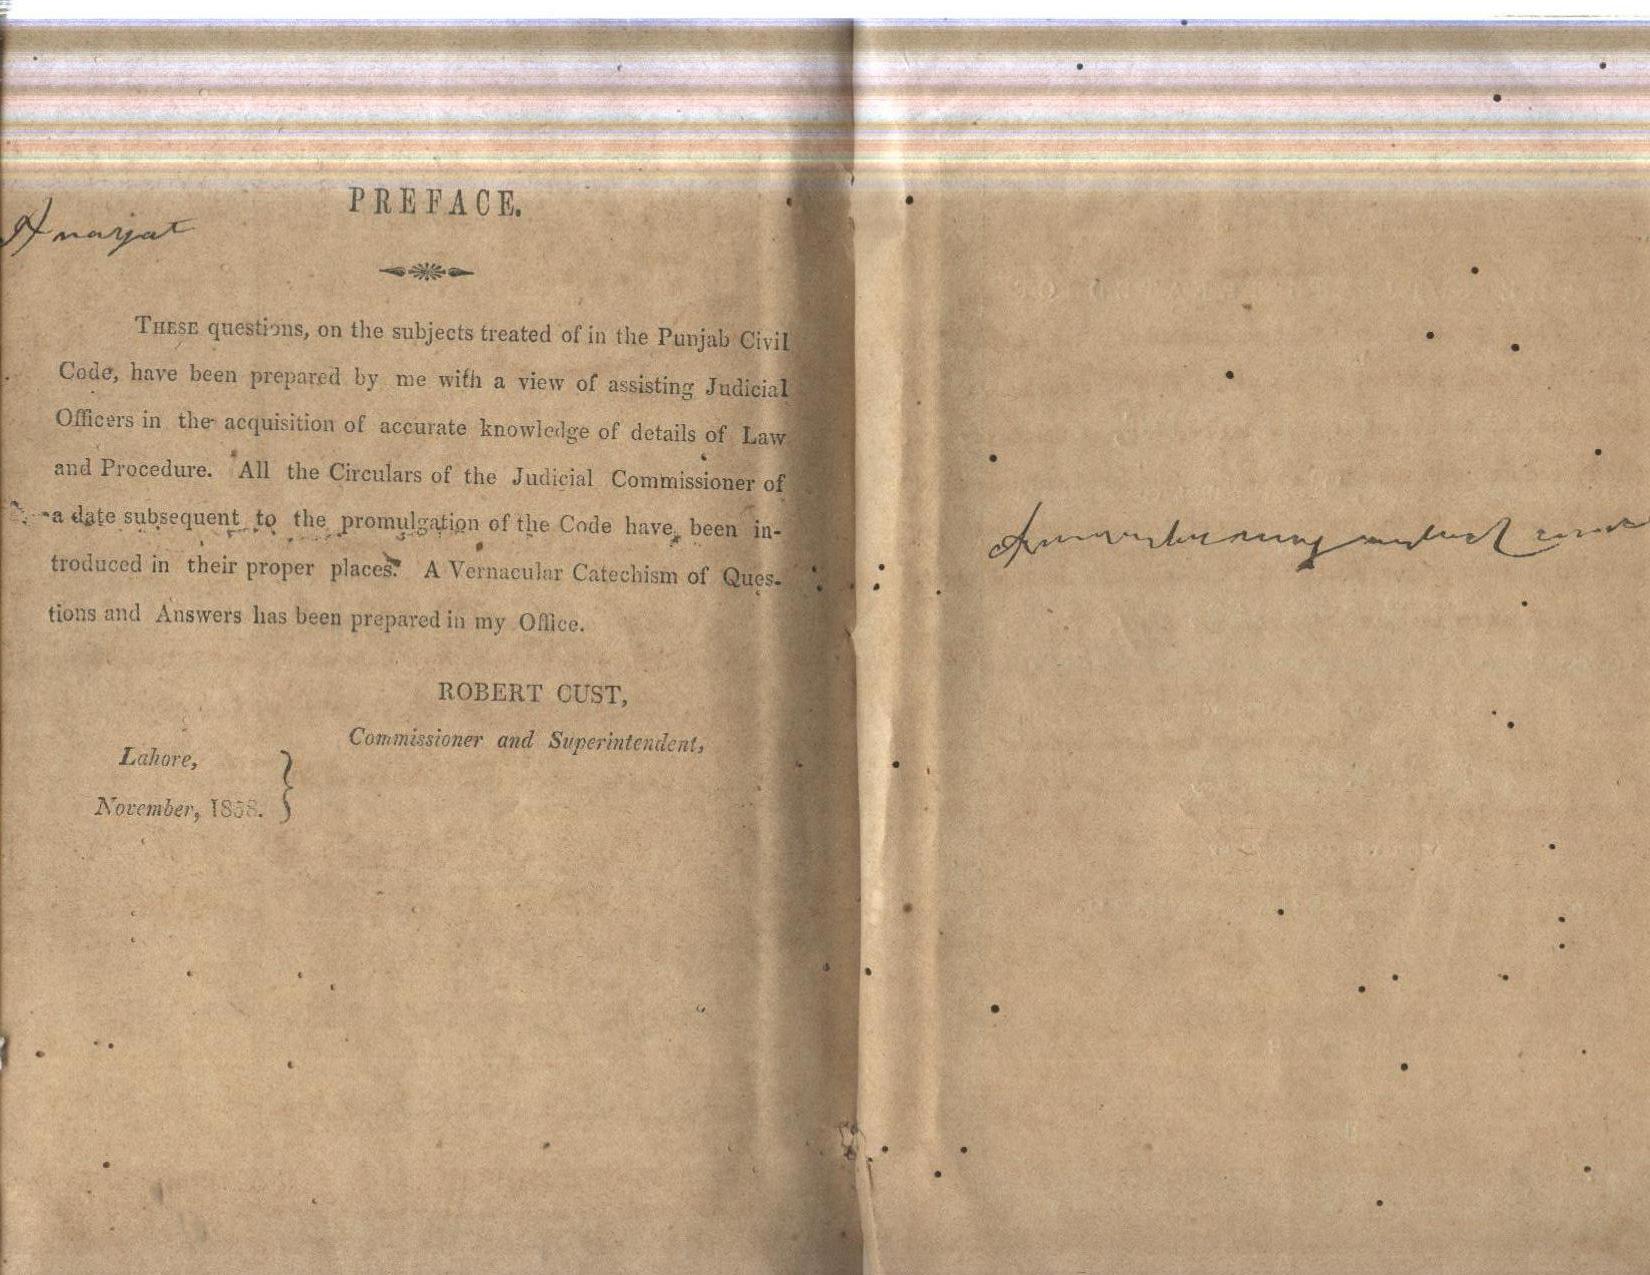 PREFACE.
THESE questions, on the subjects treated of in the Punjab Civil
Code, have been prepared by me with a view of assisting Judicial
Officers in the acquisition of accurate knowledge of details of Law
and Procedure. All the Circulars of the Judicial Commissioner of
a date subsequent to the promulgation of the Code have, been in-
troduced in their proper places. A Vernacular Catechism of Ques-
tions and Answers has been prepared in my Office.
ROBERT CUST,
Commissioner and Superintendent,
Lahore,
November, 1858.